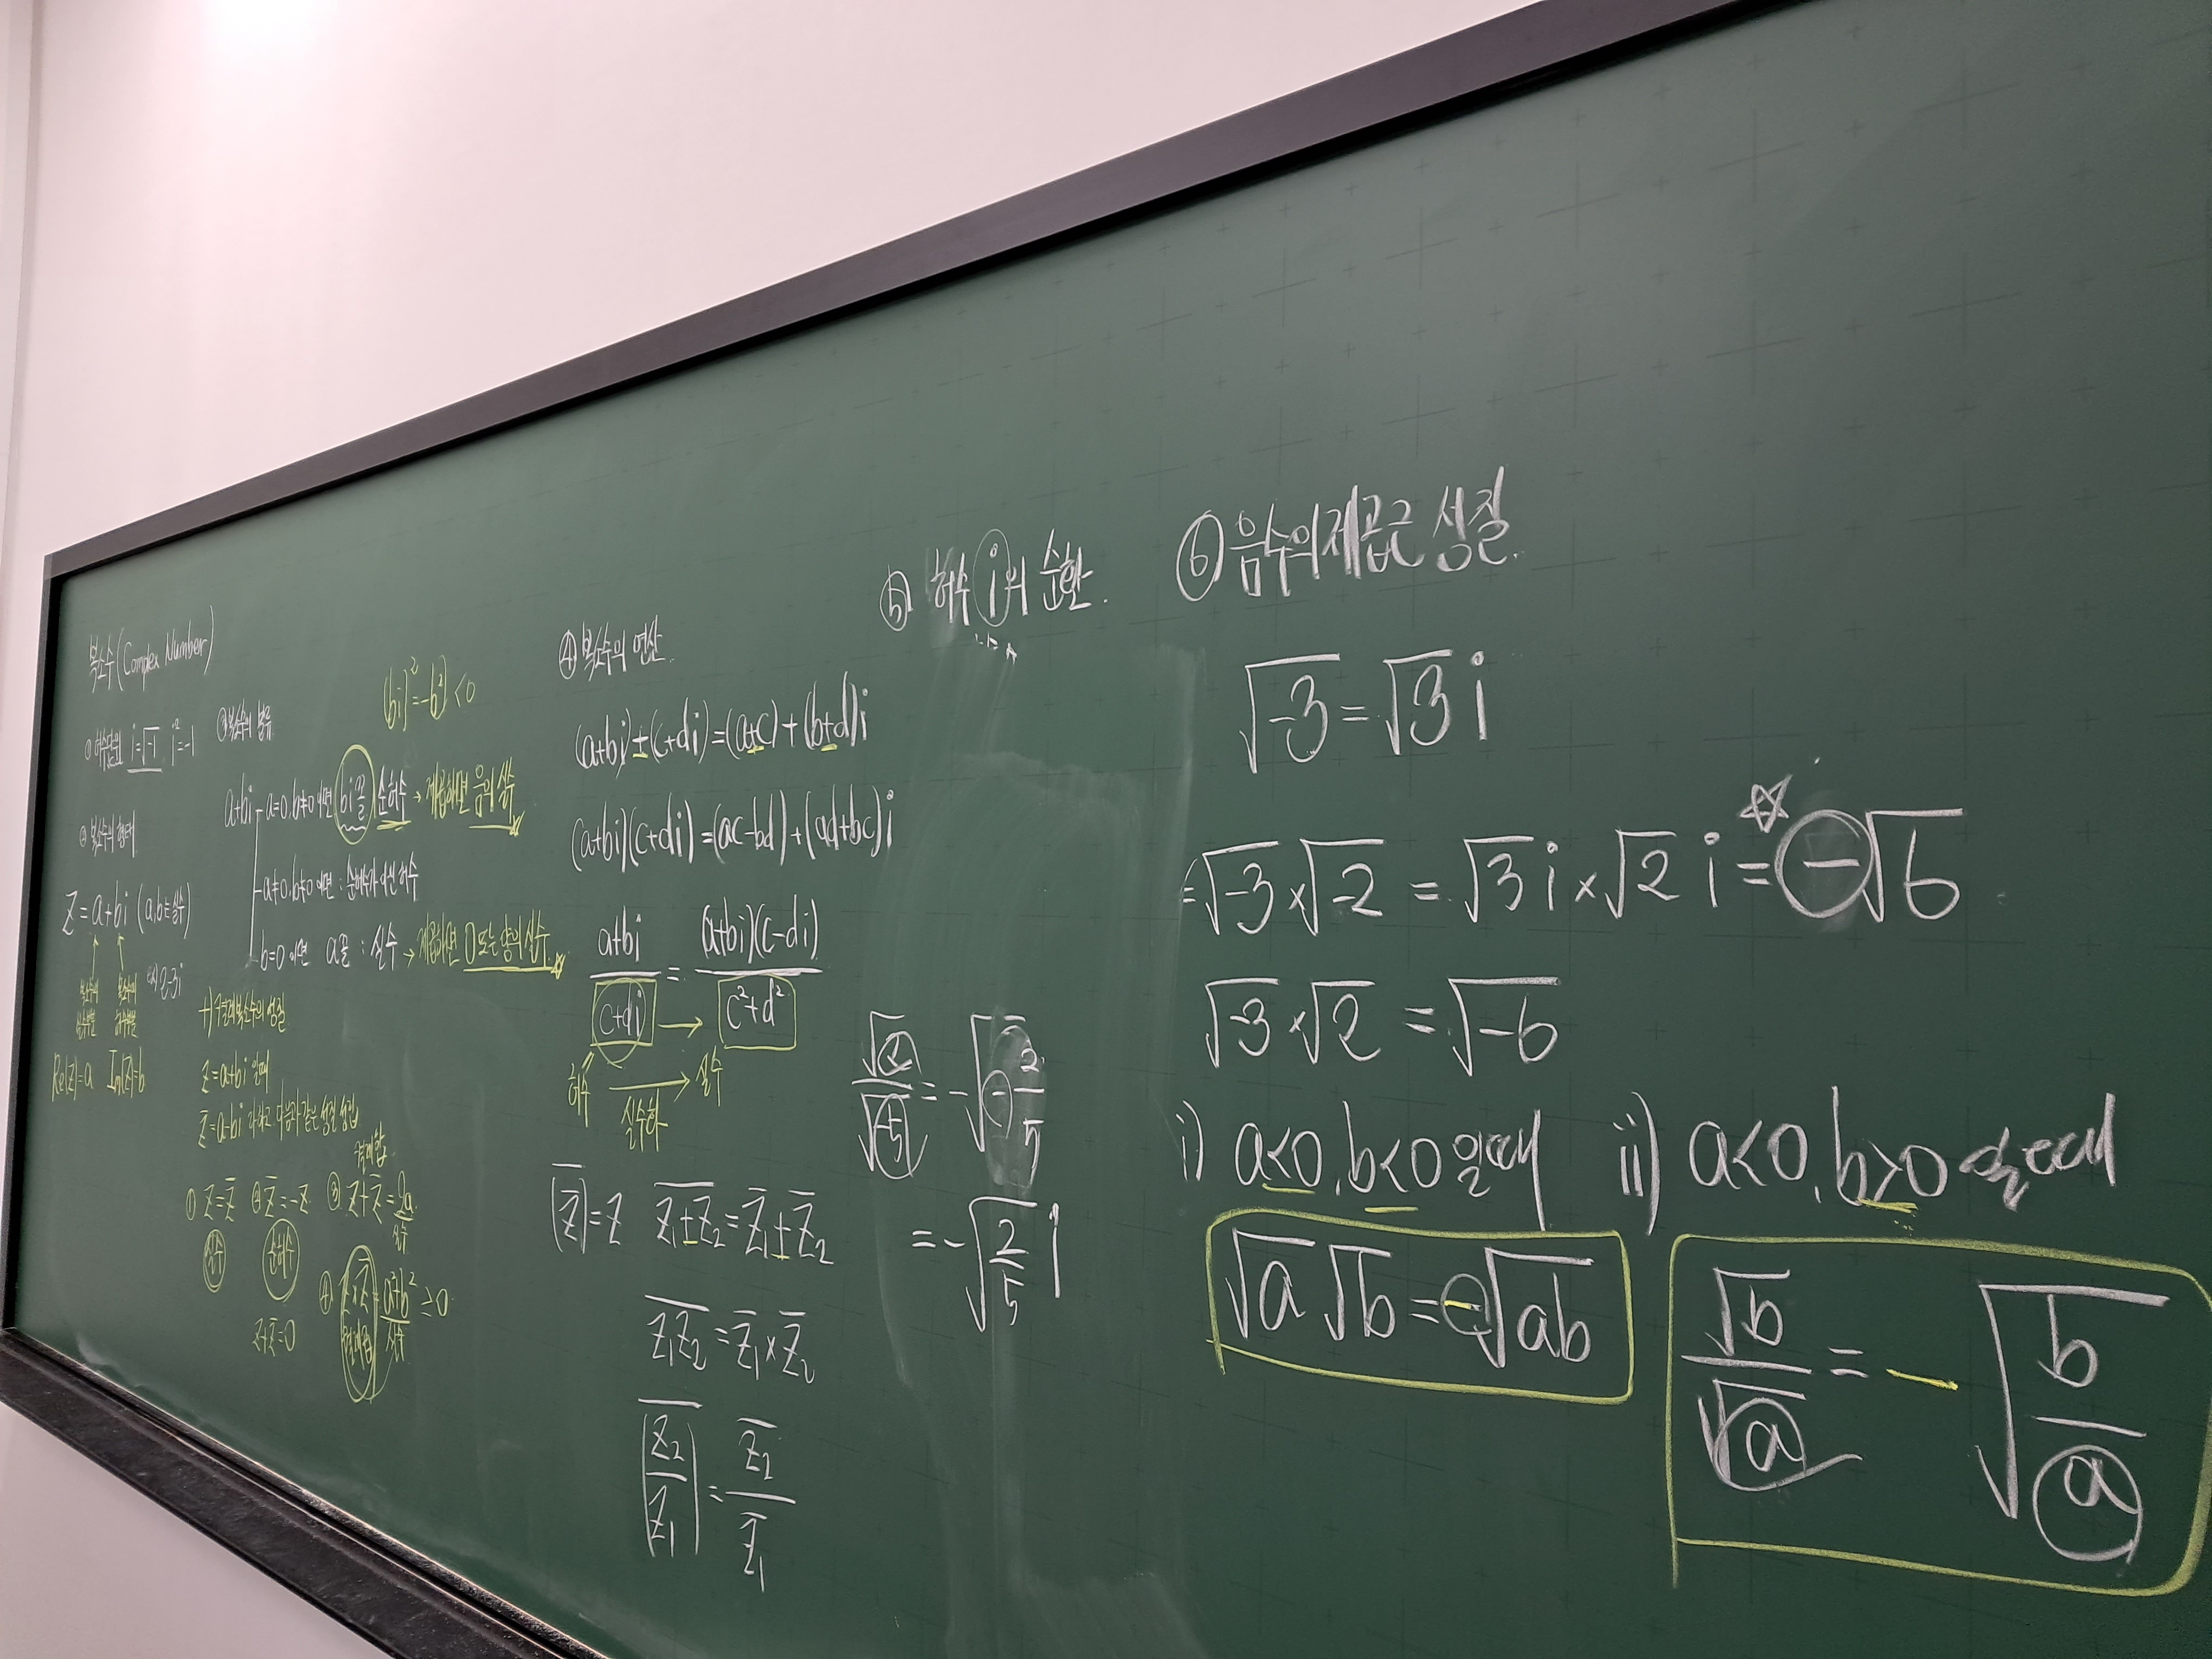 복소수(Complex Number)
① 허수단위 i=√-1 i²=-1
② 복소수의 형태
Z=a+bi (a,b는 실수)
복소수의 실수부분
복소수의 허수부분
예시 2-3i
Re(Z)=a Im(Z)=b
③ 복소수의 분류
(bi)²=-b²<0
a+bi
a=0, b≠0 이면 bi꼴 순허수 → 제곱하면 음의 실수
a≠0, b≠0 이면 : 순허수가 아닌 허수
b=0 이면 a꼴 : 실수 → 제곱하면 0또는 양의 실수
+) 켤레복소수의 성질
z=a+bi 일때
z̄=a-bi 라하고 다음과 같은 성질 성립
① z=z̄ 실수
② z̄=-z 순허수
z+z̄=0
③ 켤레합 z+z̄=2a 실수
④ z×z̄=a²+b²≥0
켤레곱 실수
④ 복소수의 연산
(a+bi)±(c+di)=(a±c)+(b±d)i
(a+bi)(c+di)=(ac-bd)+(ad+bc)i
(a+bi)/(c+di) = (a+bi)(c-di)/(c²+d²)
허수 → 실수
실수화
(z̄)‾=z (z₁±z₂)‾=z̄₁±z̄₂
(z₁z₂)‾=z̄₁×z̄₂
(z₂/z₁)‾=z̄₂/z̄₁
⑤ 허수 i의 순환
√2/√-5=-√(-2/5)
=-√(2/5) i
⑥ 음수의 제곱근 성질
√-3=√3 i
=√-3×√-2=√3 i×√2 i=☆-√6
√-3×√2=√-6
i) a<0, b<0 일때
√a√b=-√ab
ii) a<0, b>0 일때
√b/√a=-√(b/a)